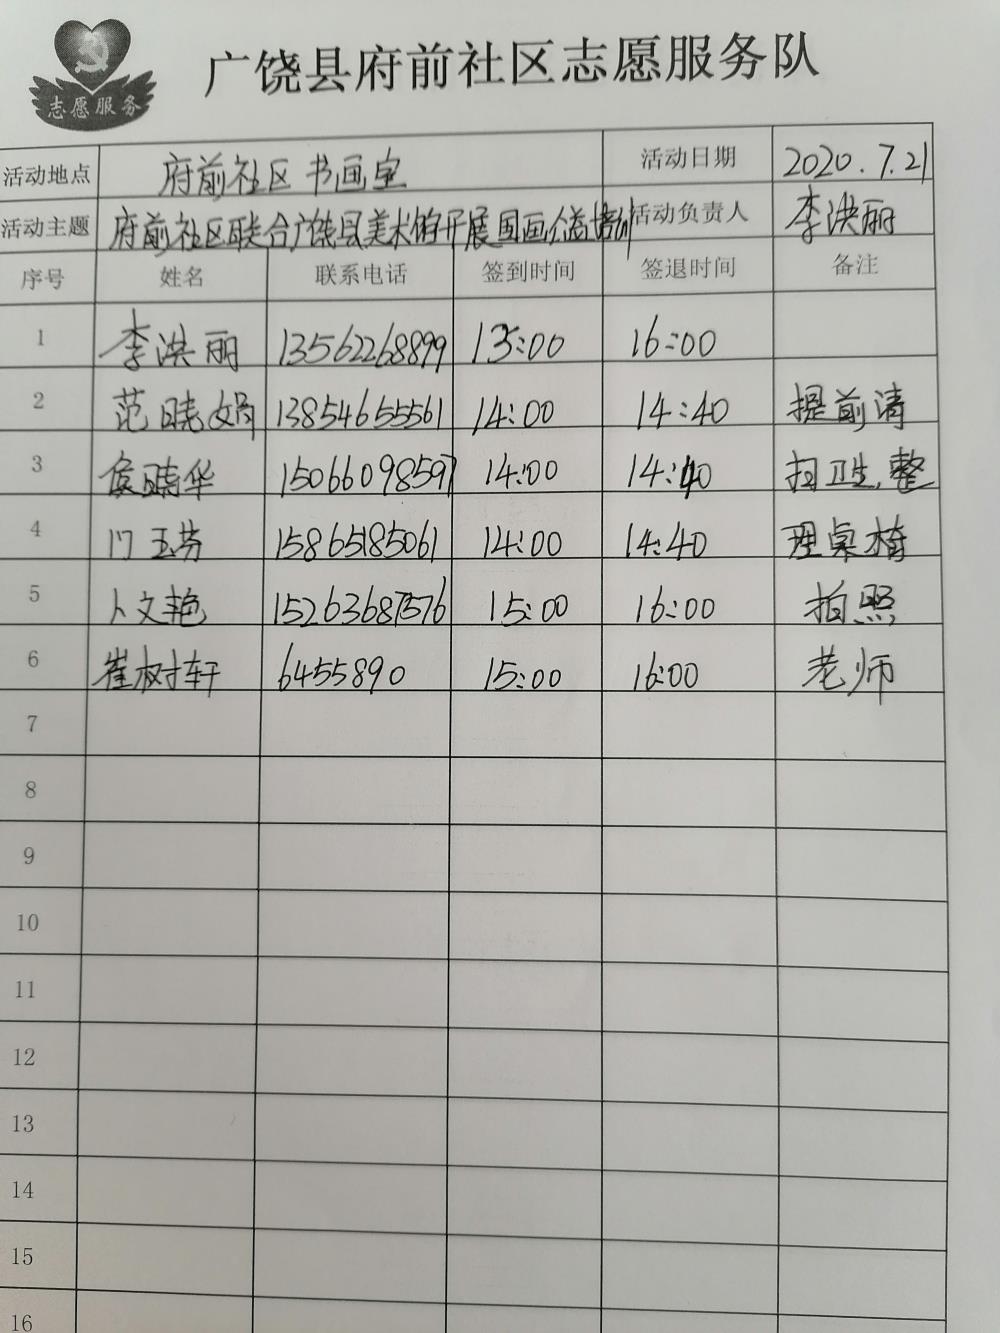 志愿服务
广饶县府前社区志愿服务队
活动地点 府前社区 书画室 活动日期 2020.7.21
活动主题 府前社区联合广饶县美术馆开展国画公益培训 活动负责人 李洪丽
序号 姓名 联系电话 签到时间 签退时间 备注
1 李洪丽 13562268899 15:00 16:00
2 范晓娟 13854655561 14:00 14:40 提前清
3 侯晓华 15066098597 14:00 14:40 扫卫生,整
4 门玉芬 15865185061 14:00 14:40 理桌椅
5 卜文艳 15263687576 15:00 16:00 拍照
6 崔树轩 6455890 15:00 16:00 老师
7
8
9
10
11
12
13
14
15
16